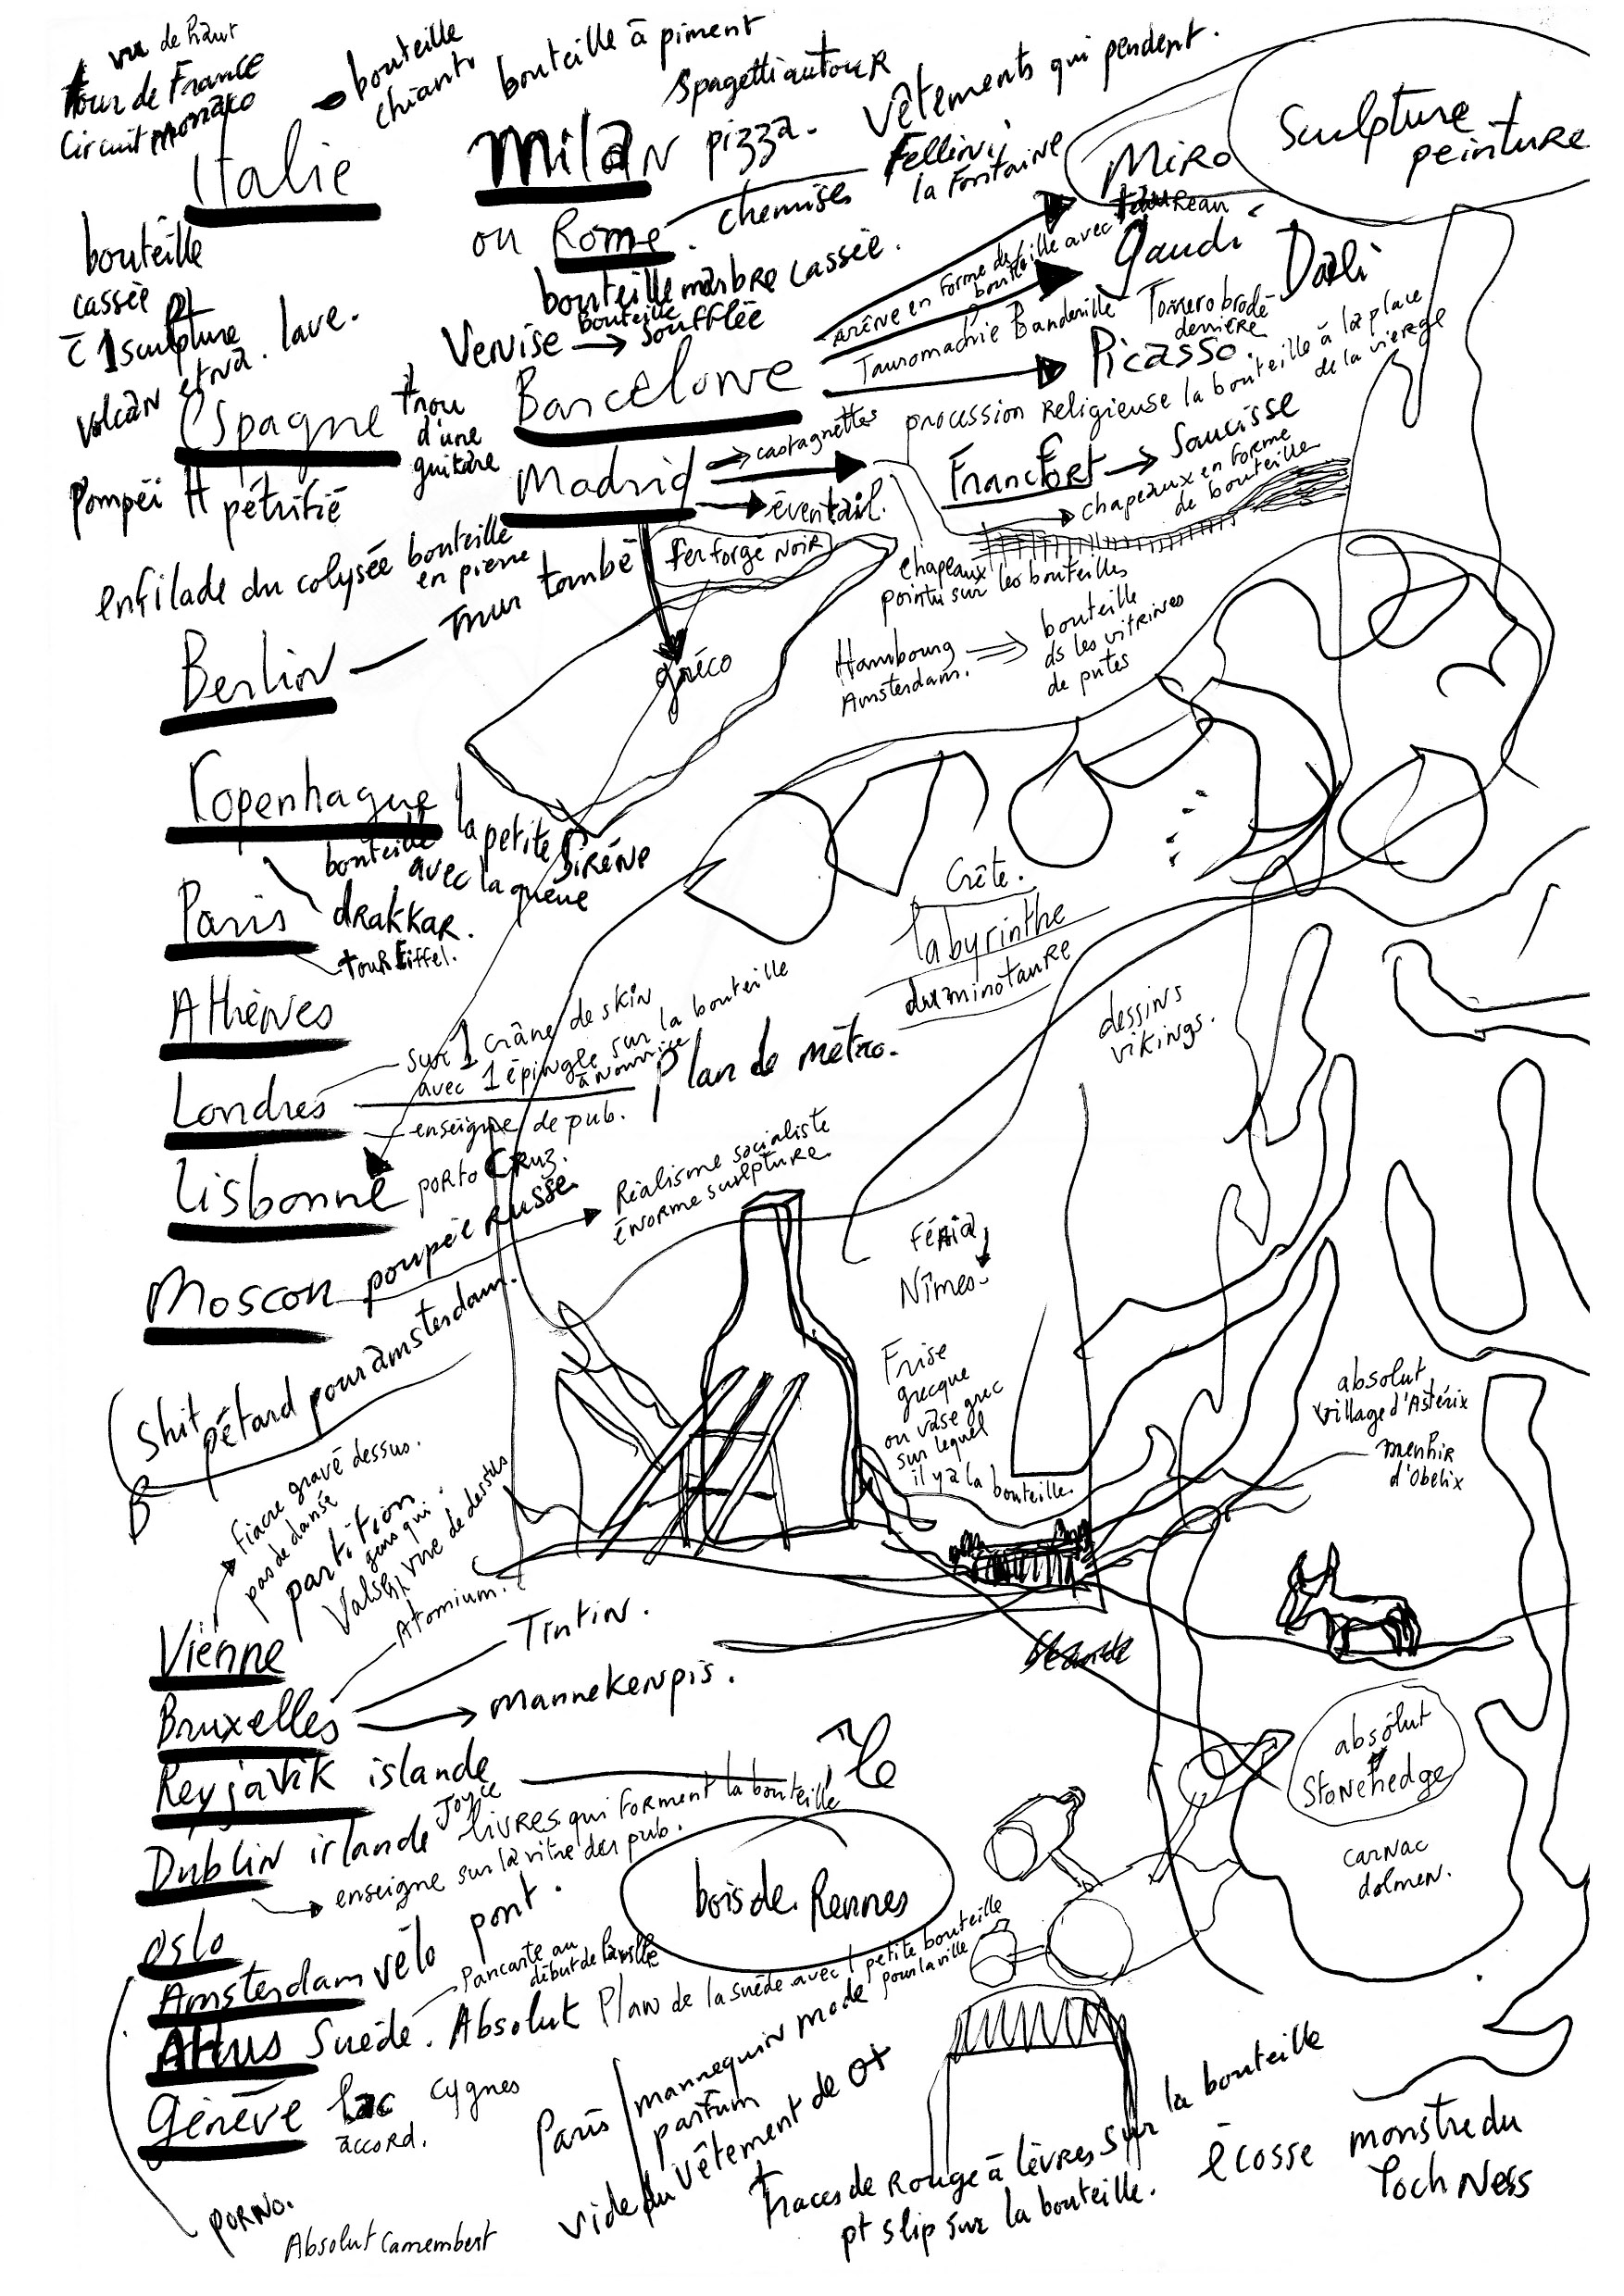 vu de haut
tour de France
Circuit Monaco
bouteille
chianti
bouteille à piment
Spagetti autour
Vêtements qui pendent.
Italie
Milan pizza.
ou Rome.
chemises
Fellini
la Fontaine
MIRO
Sculpture
peinture
taureau
bouteille
cassée
1 sculpture
volcan etna. lave.
bouteille marbre cassée.
Venise → bouteille
soufflée
arène en forme de
bouteille avec
Gaudi
Dali
Tauromachie Banderille Torero brodé
derrière
Picasso.
Espagne
trou
d'une
guitare
Barcelone
procession religieuse la bouteille à la place
de la vierge
Madrid
castagnettes
éventail.
Francfort → Saucisse
chapeaux en forme
de bouteille
Pompéi H pétrifié
enfilade du colysée bouteille
en pierre
fer forgé noir
chapeaux
pointu sur les bouteilles
Berlin — mur tombé
gréco
Hambourg ⇒ bouteille
Amsterdam. ds les vitrines
de putes
Copenhague
bouteille la petite sirène
avec la queue
drakkar.
Paris
tour Eiffel.
Crête.
labyrinthe
du minotaure
Athènes
dessins
vikings.
Londres
sur 1 crâne de skin
avec 1 épingle sur la bouteille
à nourrice
Plan de métro.
enseigne de pub.
Lisbonne porto Cruz.
Moscou poupée russe
Réalisme socialiste
énorme sculpture
Féria
Nîmes
Shit pétard pour amsterdam.
Frise
grecque
ou vase grec
sur lequel
il y a la bouteille.
absolut
village d'Astérix
menhir
d'Obelix
Fiacre gravé dessus.
pas de danse
partition
gens qui
Valsent vue de dessus
Vienne
Atomium.
Tintin.
Bruxelles → mannekenpis.
Reyjavik islande île
absolut
Stonehedge
Dublin irlande Joyce
livres qui forment la bouteille
enseigne sur la vitre des pub.
bois de Rennes
carnac
dolmen.
Oslo
Amsterdam vélo pont.
Pancarte au
début de la ville
Suède. Absolut Plan de la suède avec 1 petite bouteille
pour la ville
Génève lac cygnes
accord.
Paris
mannequin mode
parfum
vide du vêtement de
Traces de rouge à lèvres sur la bouteille
pt slip sur la bouteille.
écosse monstre du
Loch Ness
PORNO.
Absolut Camembert